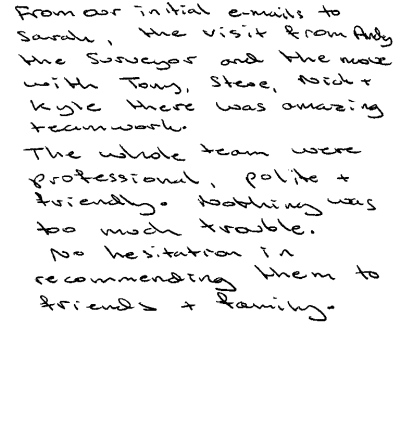 From our initial e-mails to
Sarah, the visit from Andy
the Surveyor and the move
with Tony, Steve, Nick +
Kyle there was amazing
teamwork.
The whole team were
professional, polite +
friendly. Nothing was
too much trouble.
No hesitation in
recommending them to
friends + family.